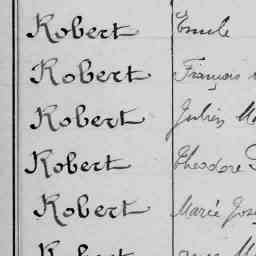 Robert Emile
Robert François
Robert Julien
Robert Théodore
Robert Marie
Robert